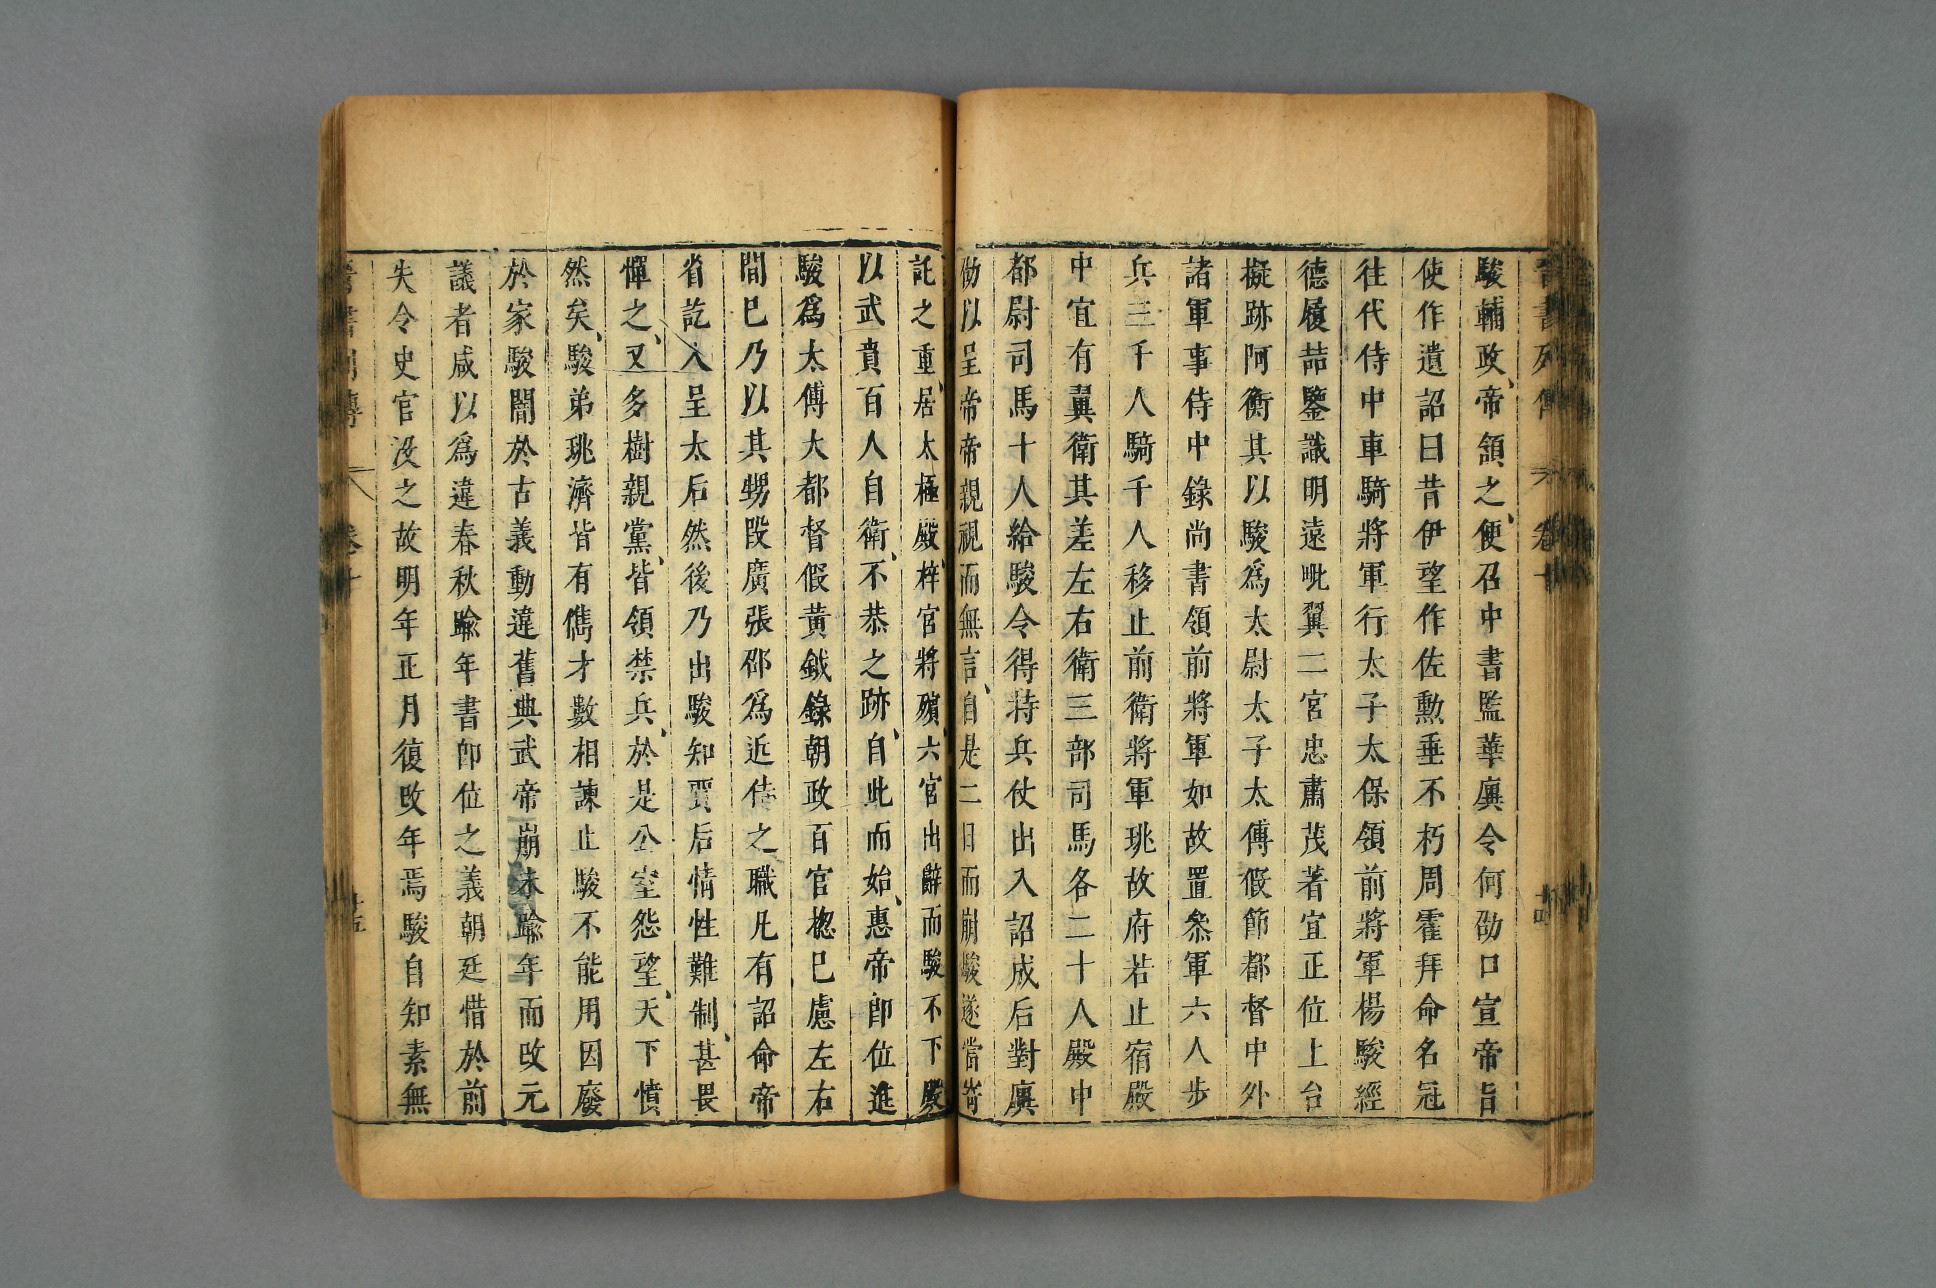 駿輔政帝頷之便召中書監華廙令何劭口宣帝旨
使作遺詔曰昔伊望作佐勳垂不朽周霍拜命名冠
往代侍中車騎將軍行太子太保領前將軍楊駿經
德履喆鑒識明遠毗翼二宮忠肅茂著宜正位上台
擬跡阿衡其以駿爲太尉太子太傅假節都督中外
諸軍事侍中錄尚書領前將軍如故置叅軍六人步
兵三千人騎千人移止前衛將軍珧故府若止宿殿
中宜有翼衛其差左右衛三部司馬各二十人殿中
都尉司馬十人給駿令得持兵仗出入詔成后對廙
劭以呈帝帝親視而無言自是二日而崩駿遂當寄
託之重居太極殿梓宮將殯六宮出辭而駿不下殿
以武賁百人自衛不恭之跡自此而始惠帝卽位進
駿爲太傅大都督假黃鉞錄朝政百官摠己慮左右
間己乃以其甥段廣張邵爲近侍之職凡有詔命帝
省訖入呈太后然後乃出駿知賈后情性難制甚畏
憚之又多樹親黨皆領禁兵於是公室怨望天下憤
然矣駿弟珧濟皆有儁才數相諫止駿不能用因廢
於家駿闇於古義動違舊典武帝崩未踰年而改元
議者咸以爲違春秋踰年書卽位之義朝廷惜於前
失令史官沒之故明年正月復改年焉駿自知素無
晉書列傳 卷十